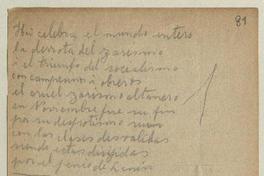 81
Hoi celebra el mundo entero
la derrota del zarismo
i el triunfo del socialismo
con campesinos i obreros
el cruel zarismo altanero
en Noviembre fue su fin
por su despotismo
con las clases desvalidas
por el jenio de Lenin